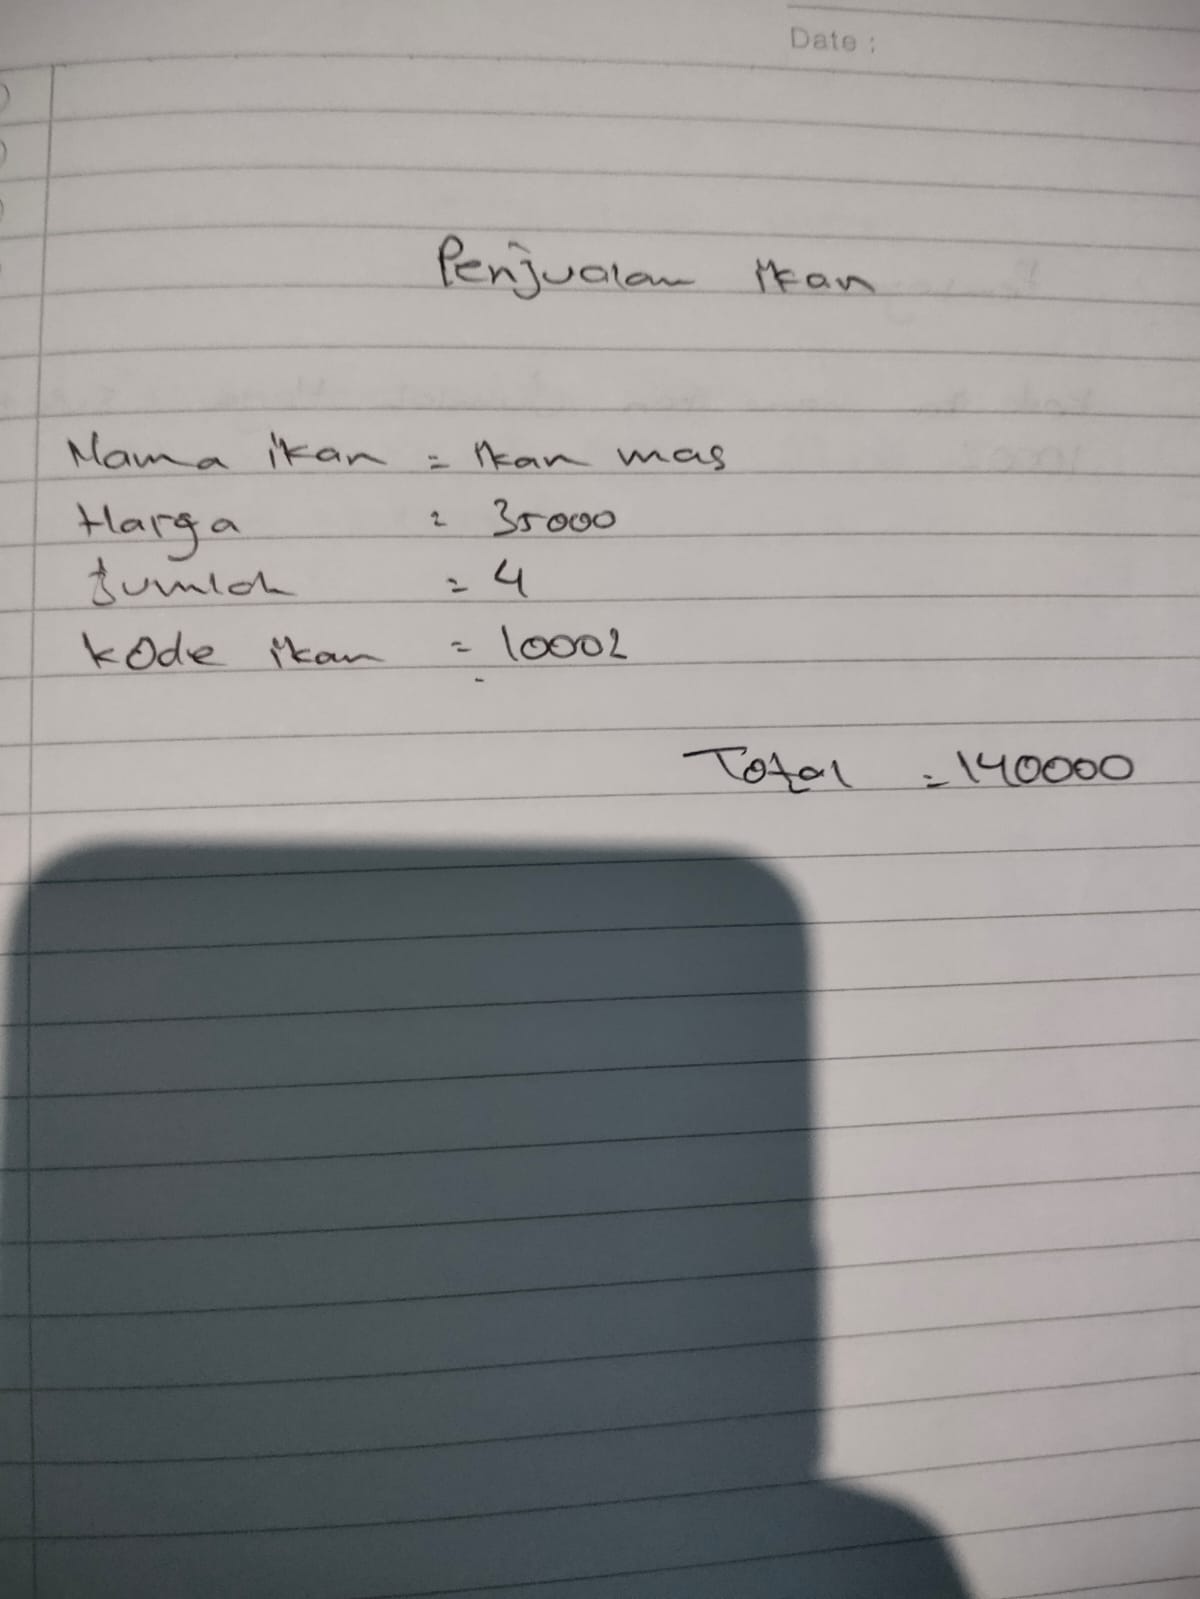 Date :
Penjualan ikan
Nama ikan = Ikan mas
Harga = 35000
Jumlah = 4
kode ikan = 10002
Total = 140000